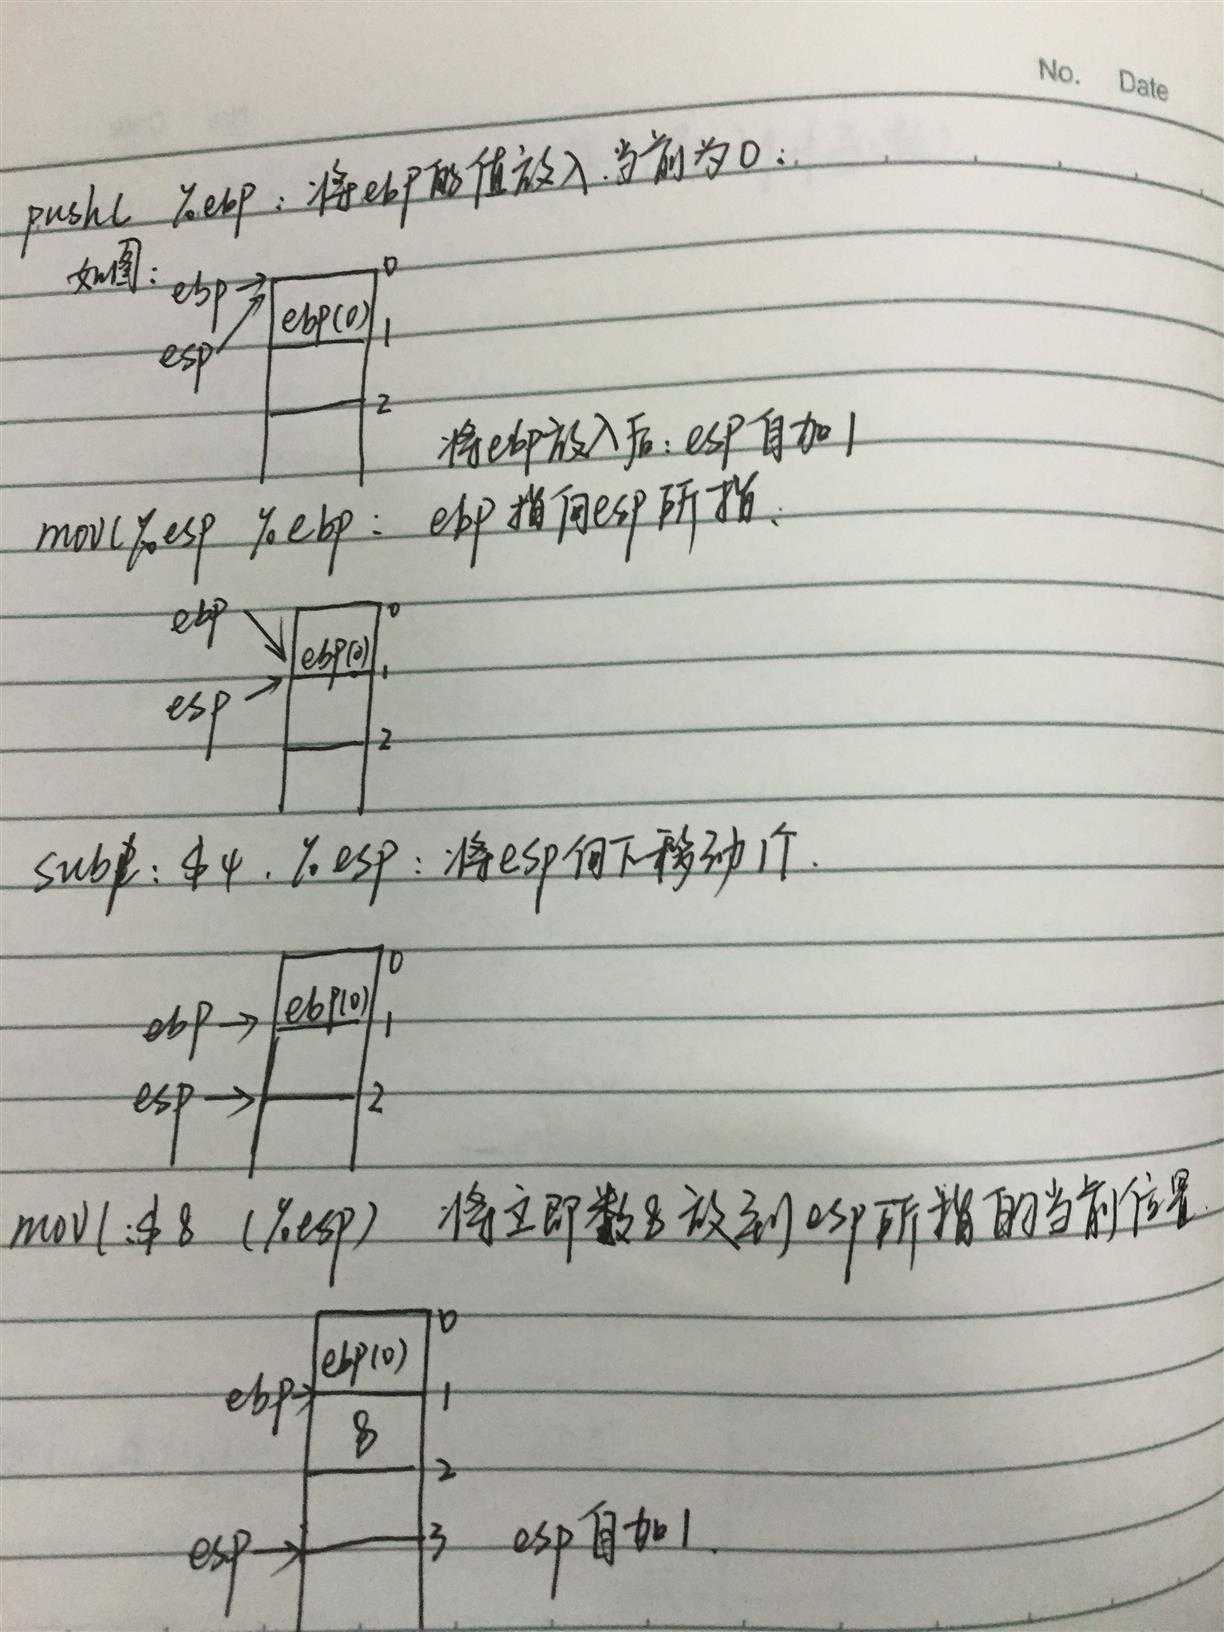 No. Date
pushl %ebp : 将ebp的值放入.当前为0 :
如图:
ebp
0
ebp(0)
esp
1
2
将ebp放入后: esp自加1
movl %esp %ebp : ebp指向esp所指.
ebp
0
ebp(0)
esp
1
2
subl : $4 . %esp : 将esp向下移动1个.
0
ebp(0)
ebp
1
esp
2
movl : $8 (%esp) 将立即数8放到esp所指的当前位置.
0
ebp(0)
ebp
1
8
2
esp
3
esp自加1.